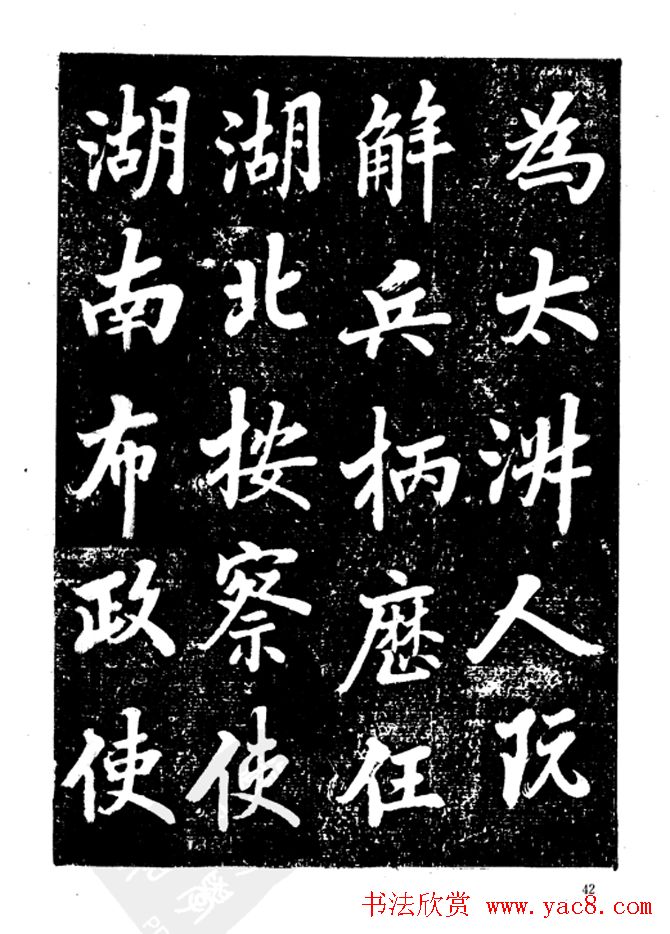 為太人阮
解兵柄歷任
湖北按察使
湖南布政使
42
书法欣赏 www.yac8.com